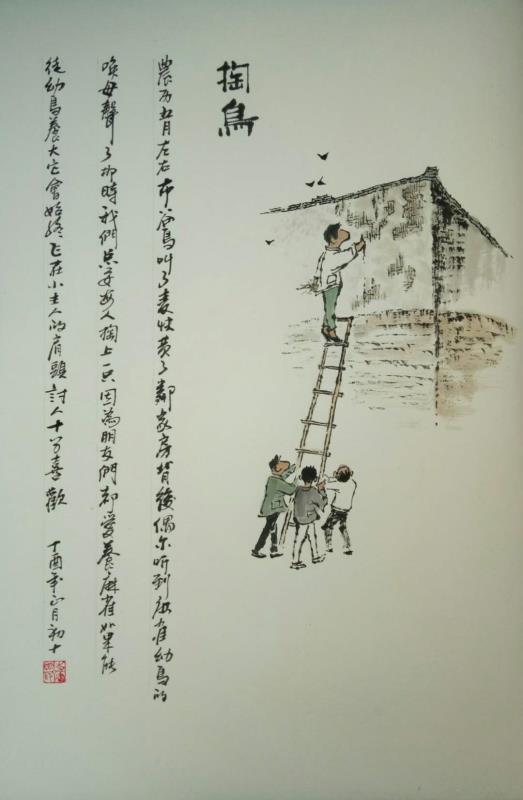 掏鳥
農历五月左右布谷鳥叫了麦杖黄了鄰家房背後偶尔听到麻雀幼鳥的
唤母聲了那時我們总要每人掏上一只因為朋友們都爱養麻雀如果能
從幼鳥養大它會始終飞在小主人的肩頭討人十分喜歡
丁酉年正月初十